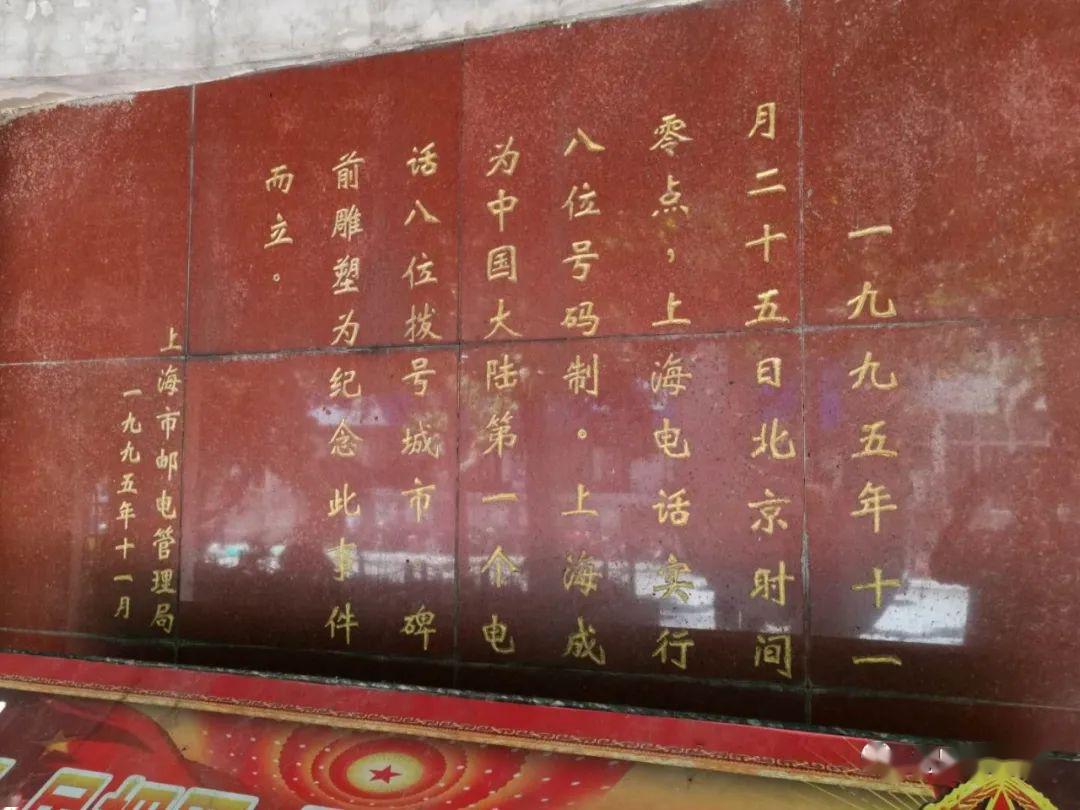 一九九五年十一
月二十五日北京时间
零点，上海电话实行
八位号码制。上海成
为中国大陆第一个电
话八位拨号城市碑
前雕塑为纪念此事件
而立。
上海市邮电管理局
一九九五年十一月